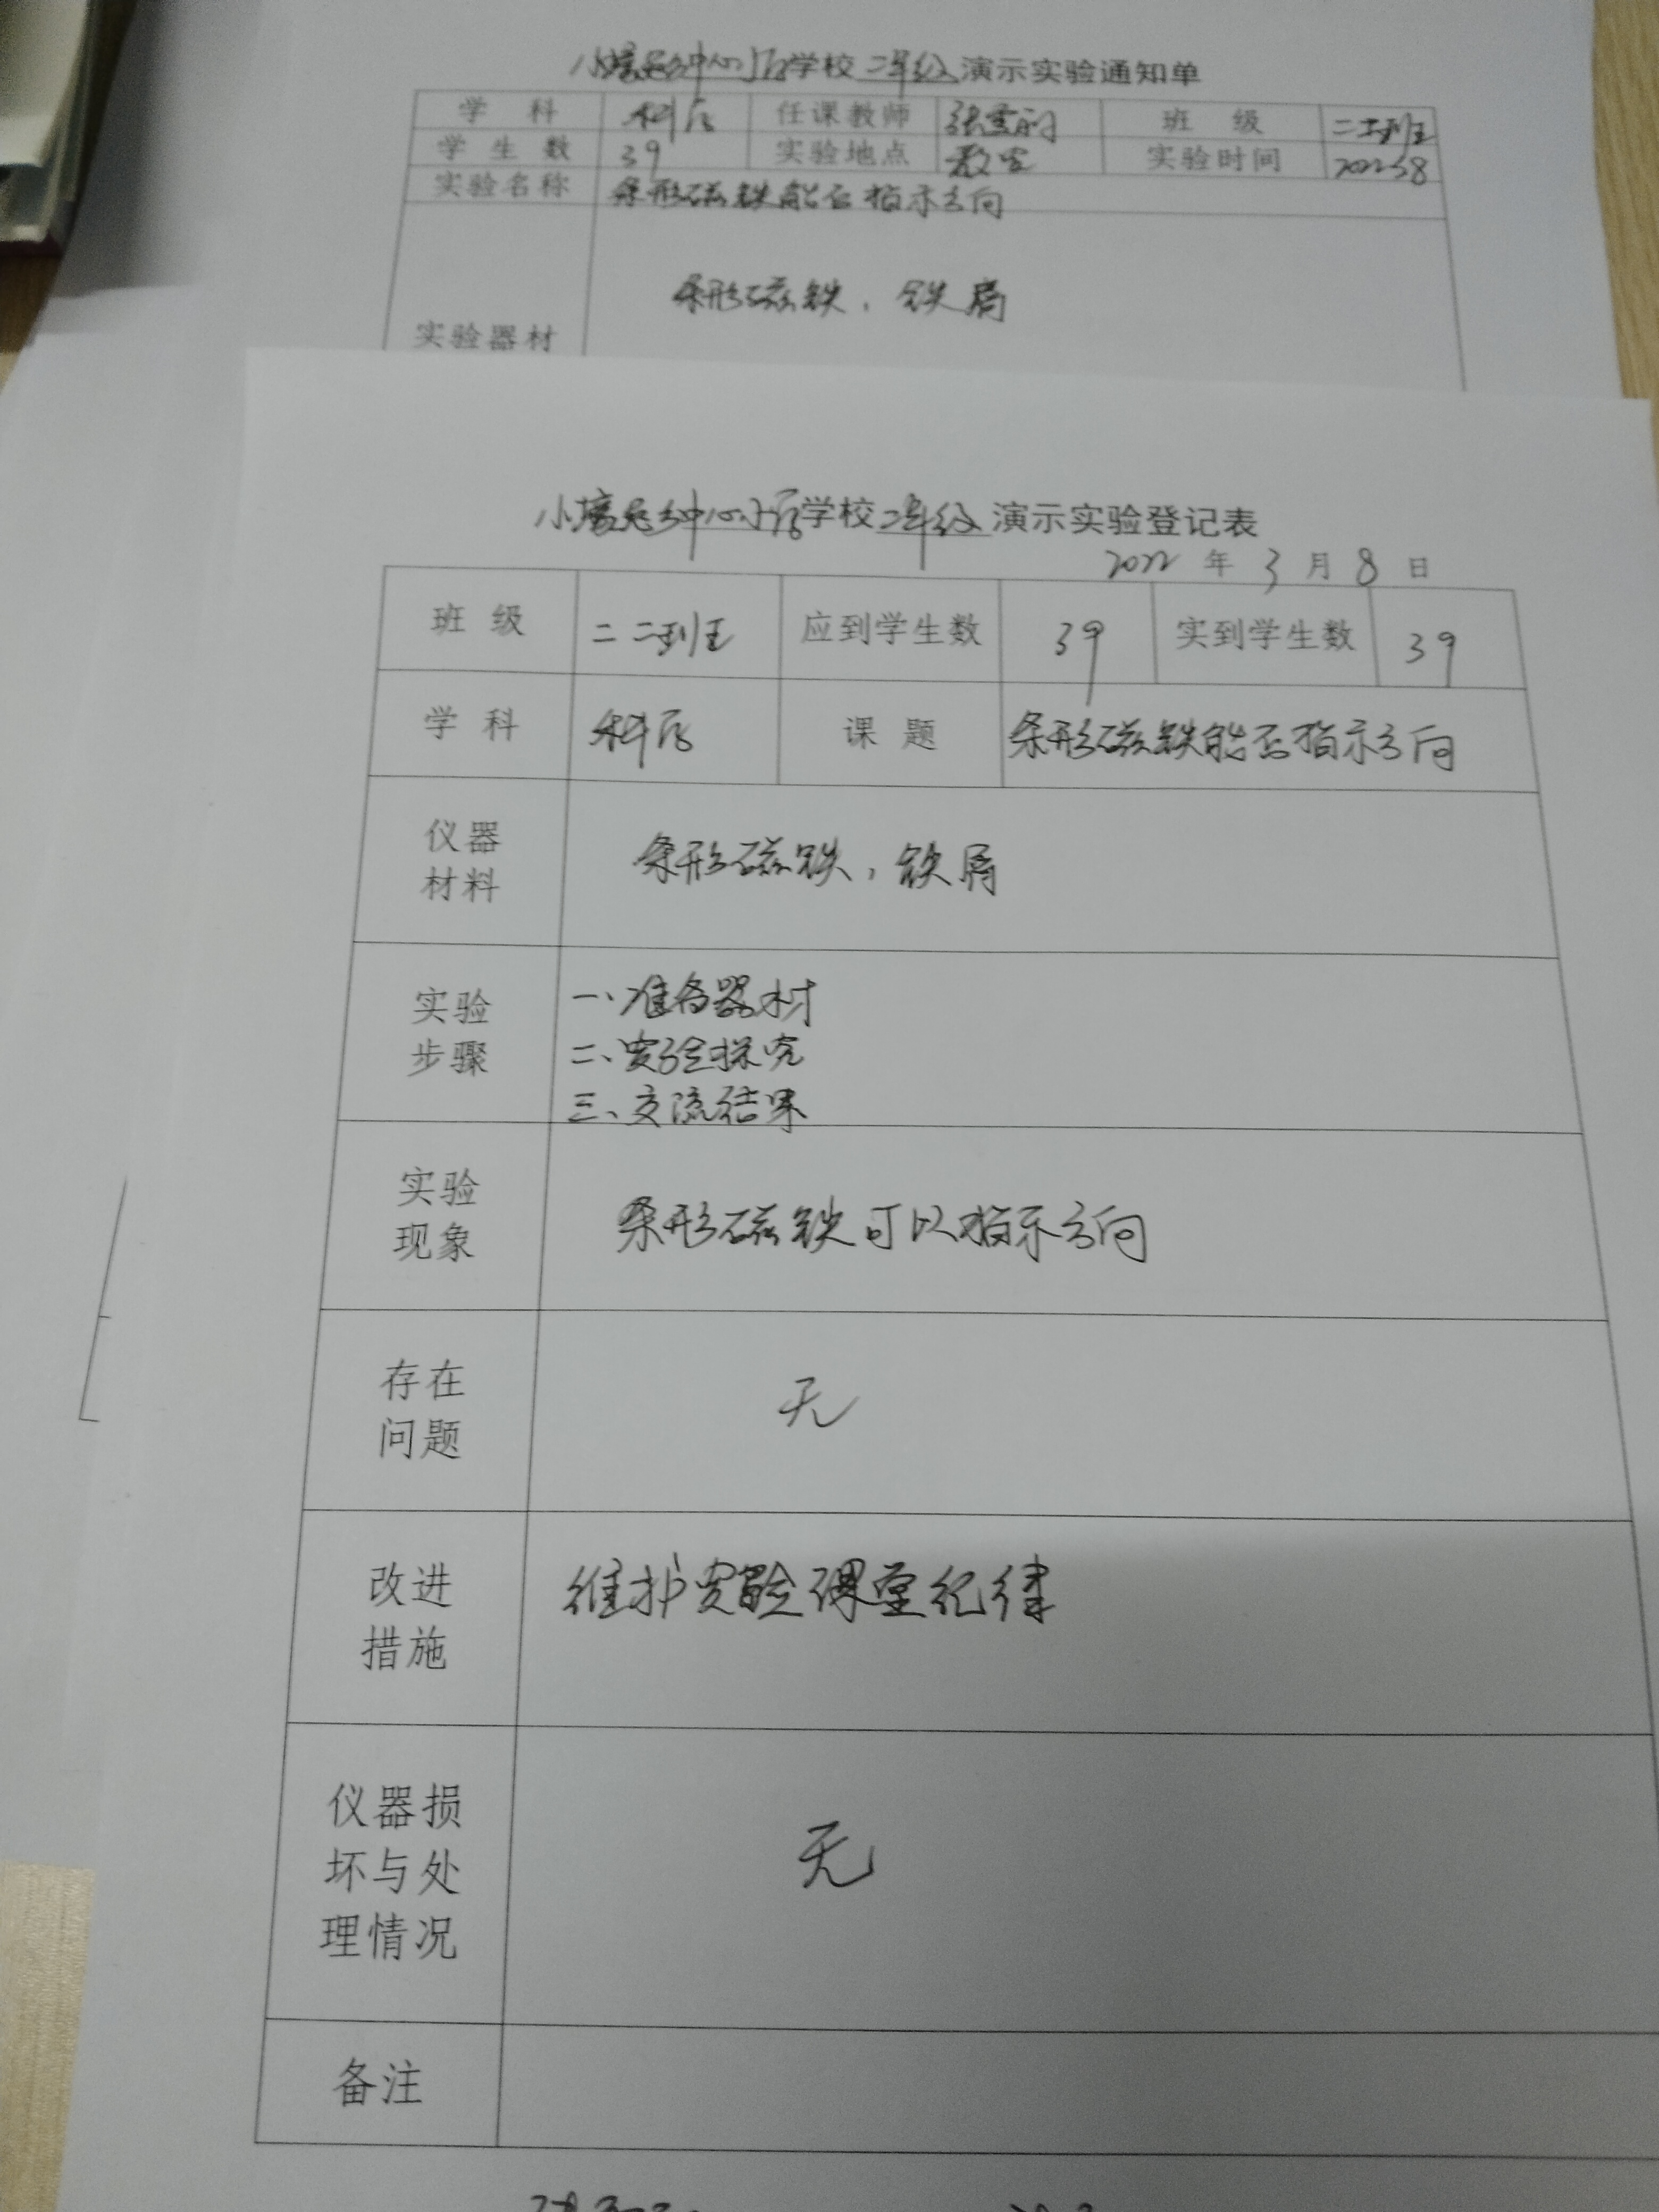 中心小学学校 二年级 演示实验通知单
学 科 科学 任课教师 班 级 二二班
学 生 数 39 实验地点 教室 实验时间 2022.3.8
实验名称 条形磁铁能否指示方向
实验器材 条形磁铁，铁屑
中心小学学校 二年级 演示实验登记表
2022 年 3 月 8 日
班 级 二二班 应到学生数 39 实到学生数 39
学 科 科学 课 题 条形磁铁能否指示方向
仪器
材料
条形磁铁，铁屑
实验
步骤
一、准备器材
二、实验探究
三、交流结果
实验
现象
条形磁铁可以指示方向
存在
问题
无
改进
措施
维护实验课堂纪律
仪器损
坏与处
理情况
无
备注